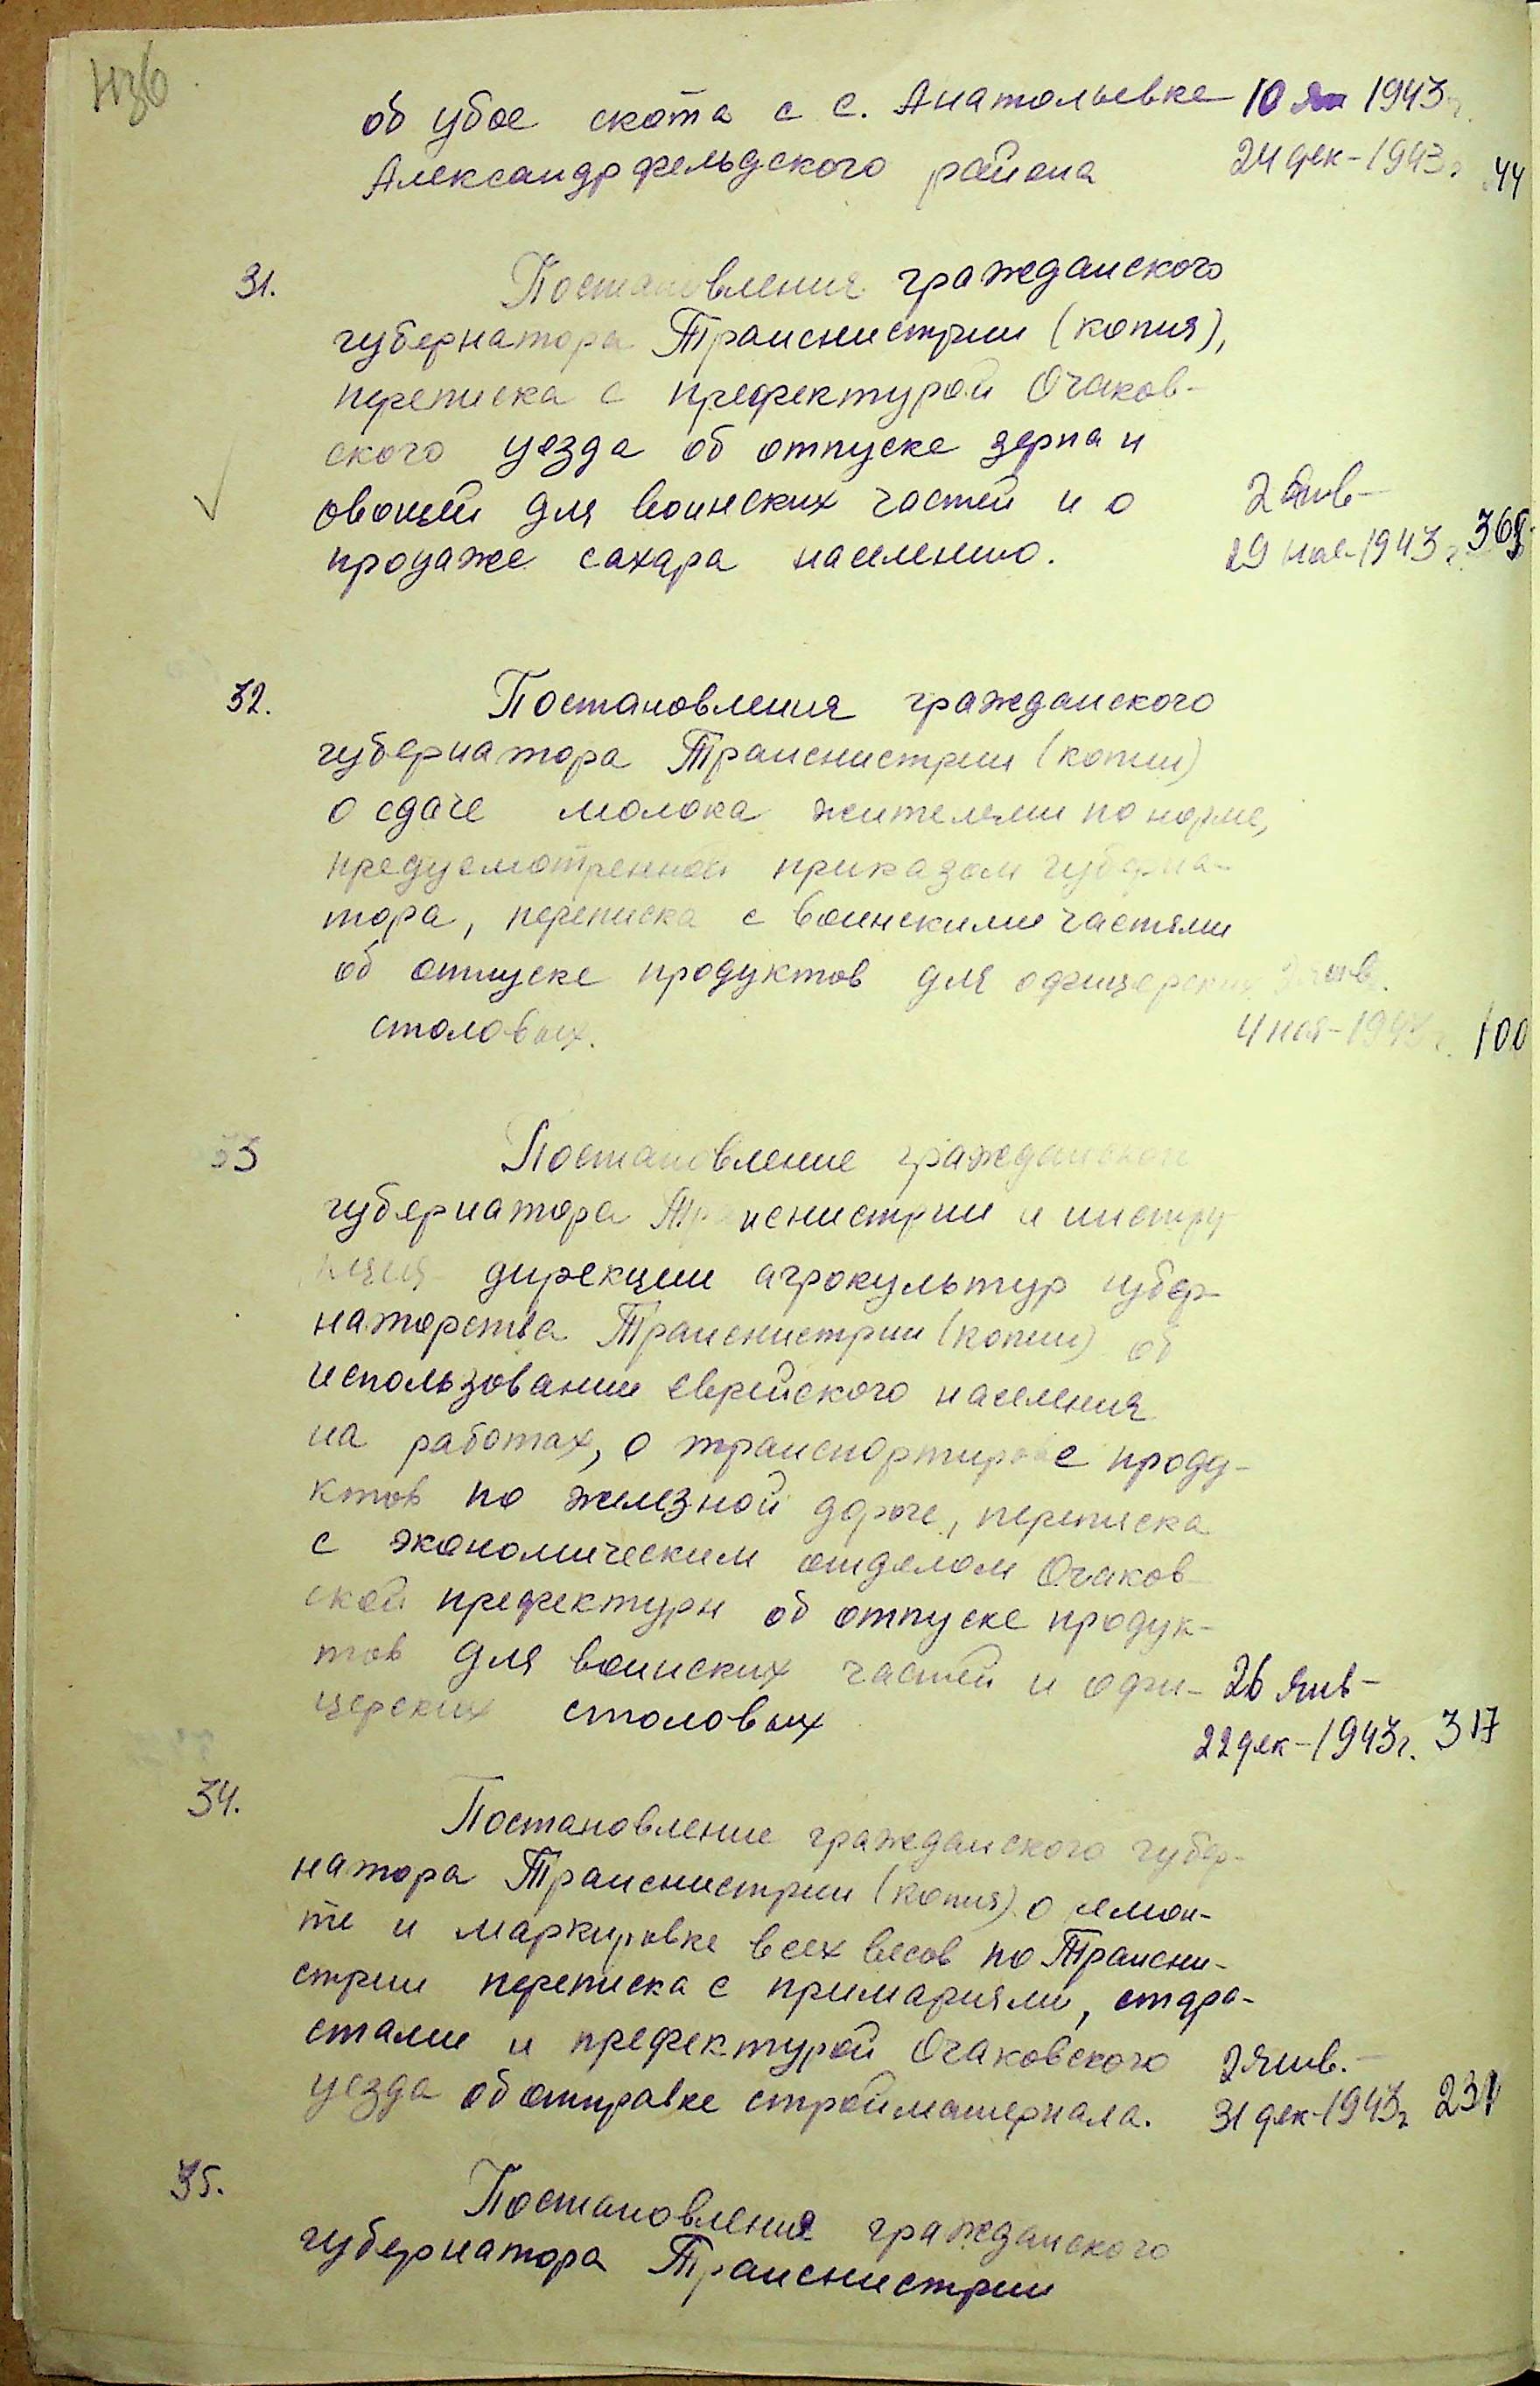 об убое скота с с. Анатольевке 10 янв 1943 г.
Александрфельдского района 24 дек-1943 г. 44
31. Постановления гражданского
губернатора Транснистрии (копия),
переписка с префектурой Очаков-
ского уезда об отпуске зерна и
овощей для воинских частей и о 2 янв-
продаже сахара населению. 29 ноя-1943 г.
32. Постановления гражданского
губернатора Транснистрии (копии)
о сдаче молока жителями по норме,
предусмотренной приказом губерна-
тора, переписка с воинскими частями
об отпуске продуктов для офицерских янв.
столовых. 4 ноя-1943 г. 100
33 Постановление гражданского
губернатора Транснистрии и инстру
кция дирекции агрокультур губер-
наторства Транснистрии (копии) об
использовании еврейского населения
на работах, о транспортировке проду-
ктов по железной дороге, переписка
с экономическим отделом Очаков-
ской префектуры об отпуске продук-
тов для воинских частей и офи- 26 янв-
церских столовых 22 дек-1943 г. 317
34. Постановление гражданского губер-
натора Транснистрии (копия) о ремон-
те и маркировке всех весов по Трансни-
стрии переписка с примариями, старо-
стами и префектурой Очаковского 2 янв.-
уезда об отправке стройматериала. 31 дек-1943 г.
35. Постановления гражданского
губернатора Транснистрии